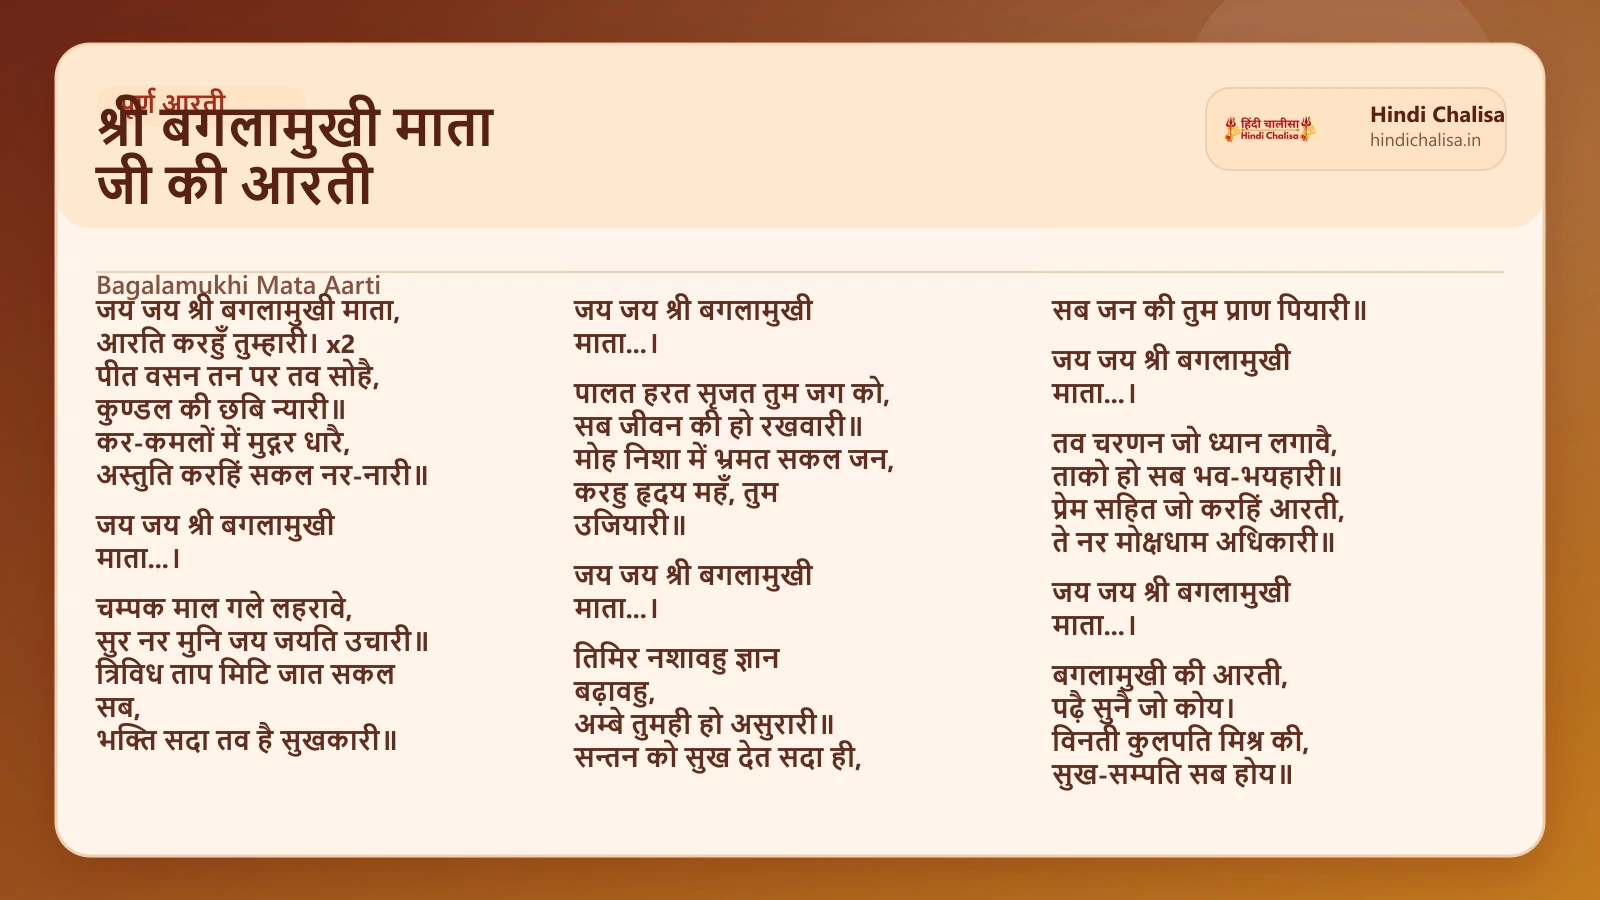 पूर्ण आरती
श्री बगलामुखी माता
जी की आरती
हिंदी चालीसा
Hindi Chalisa
Hindi Chalisa
hindichalisa.in
Bagalamukhi Mata Aarti
जय जय श्री बगलामुखी माता,
आरति करहुँ तुम्हारी। x2
पीत वसन तन पर तव सोहै,
कुण्डल की छबि न्यारी॥
कर-कमलों में मुद्गर धारै,
अस्तुति करहिं सकल नर-नारी॥
जय जय श्री बगलामुखी
माता...।
चम्पक माल गले लहरावे,
सुर नर मुनि जय जयति उचारी॥
त्रिविध ताप मिटि जात सकल
सब,
भक्ति सदा तव है सुखकारी॥
जय जय श्री बगलामुखी
माता...।
पालत हरत सृजत तुम जग को,
सब जीवन की हो रखवारी॥
मोह निशा में भ्रमत सकल जन,
करहु हृदय महँ, तुम
उजियारी॥
जय जय श्री बगलामुखी
माता...।
तिमिर नशावहु ज्ञान
बढ़ावहु,
अम्बे तुमही हो असुरारी॥
सन्तन को सुख देत सदा ही,
सब जन की तुम प्राण पियारी॥
जय जय श्री बगलामुखी
माता...।
तव चरणन जो ध्यान लगावै,
ताको हो सब भव-भयहारी॥
प्रेम सहित जो करहिं आरती,
ते नर मोक्षधाम अधिकारी॥
जय जय श्री बगलामुखी
माता...।
बगलामुखी की आरती,
पढ़ै सुनै जो कोय।
विनती कुलपति मिश्र की,
सुख-सम्पति सब होय॥